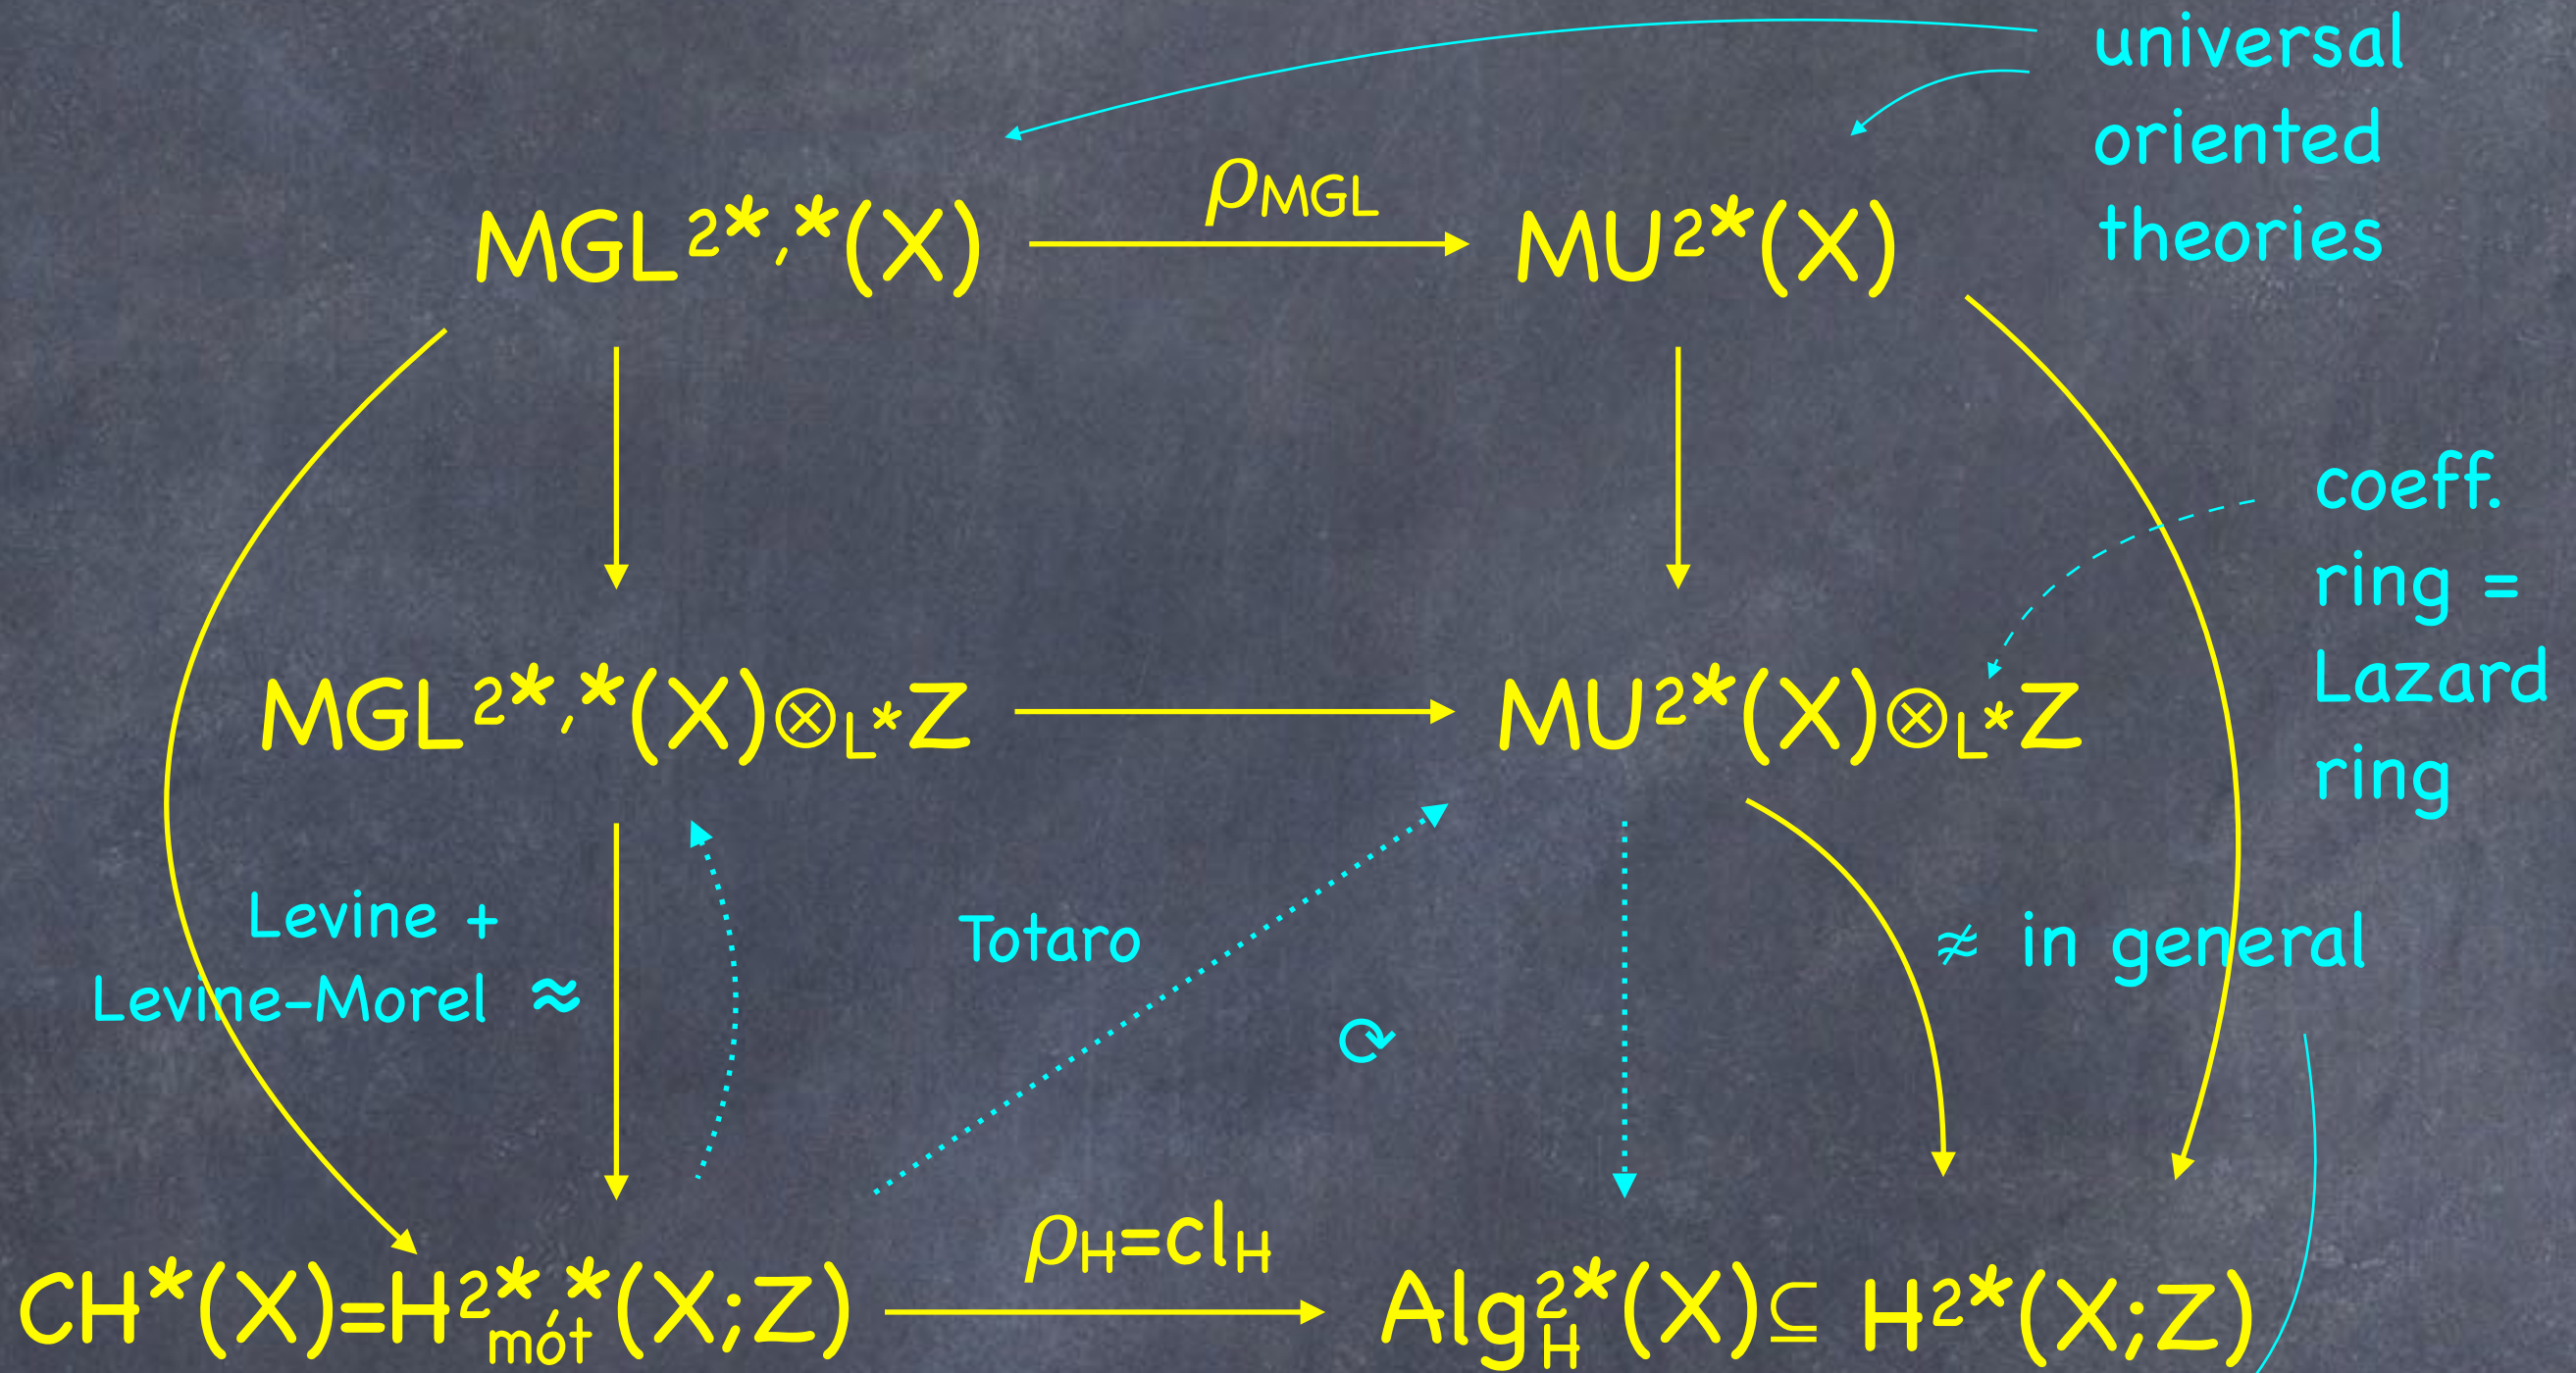 universal
oriented
theories
ρMGL
MGL²*,*(X)
MU²*(X)
coeff.
ring =
Lazard
ring
MGL²*,*(X)⊗L*Z
MU²*(X)⊗L*Z
Levine +
Levine-Morel ≈
Totaro
≉ in general
⟳
ρH=clH
CH*(X)=H²*,*mot(X;Z)
Alg²*H(X)⊆ H²*(X;Z)